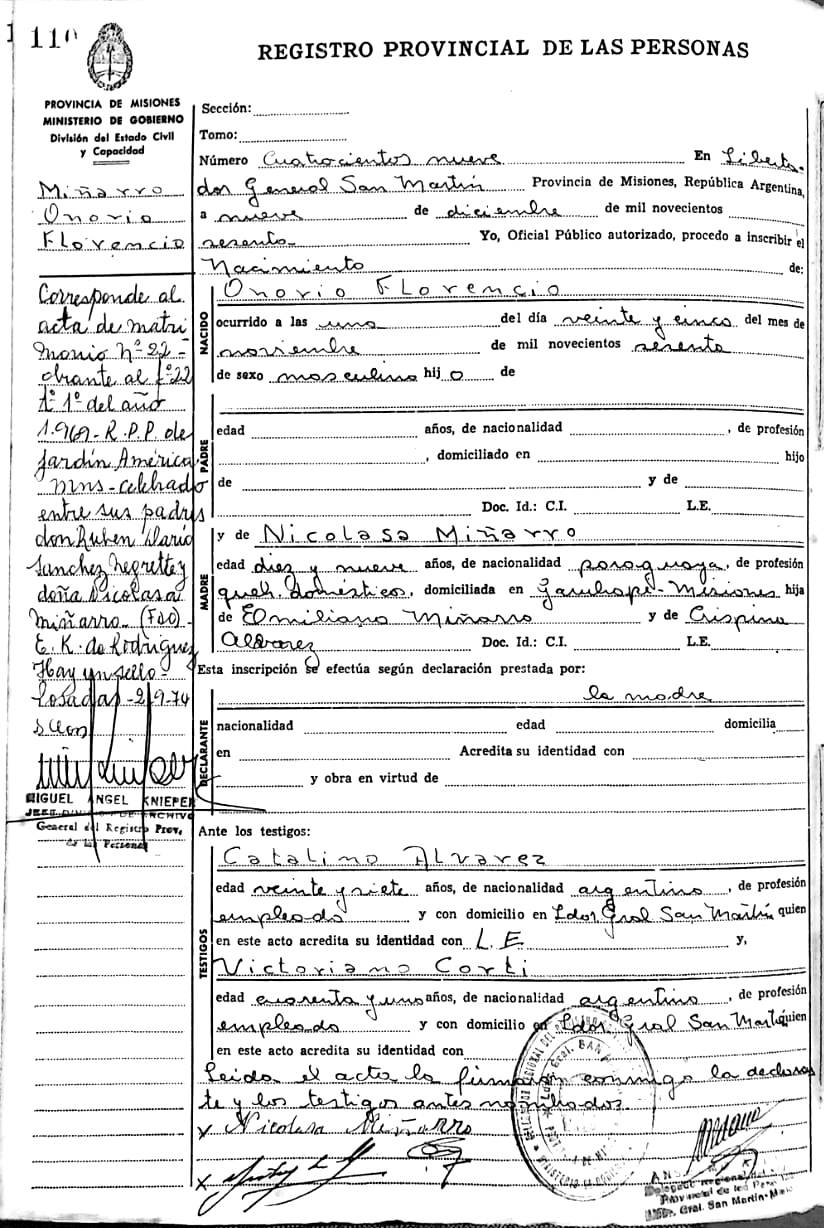 110
REGISTRO PROVINCIAL DE LAS PERSONAS
PROVINCIA DE MISIONES
MINISTERIO DE GOBIERNO
División del Estado Civil
y Capacidad
Miñarro
Onorio
Florencio
Corresponde al
acta de matri
monio Nº 22 -
obrante al fº 22
tº 1º del año
1.969 - R.P.P. de
Jardín América
Mns - celebrado
entre sus padres
don Ruben Dario
Sanchez Negrette y
doña Nicolasa
Miñarro - (Fdo) -
E. K. de Rodriguez
Hay un sello -
Posadas - 2/9-74
MIGUEL ANGEL KNIEPER
JEFE DIVISION DE ARCHIVO
General del Registro Prov.
de las Personas
Sección:
Tomo:
Número Cuatrocientos nueve En Liberta-
dor General San Martín Provincia de Misiones, República Argentina,
a nueve de diciembre de mil novecientos
sesenta Yo, Oficial Público autorizado, procedo a inscribir el
Nacimiento de:
NACIDO
Onorio Florencio
ocurrido a las una del día veinte y cinco del mes de
noviembre de mil novecientos sesenta
de sexo masculino hijo de
PADRE
edad años, de nacionalidad , de profesión
, domiciliado en hijo
de y de
Doc. Id.: C.I. L.E.
MADRE
y de Nicolasa Miñarro
edad diez y nueve años, de nacionalidad paraguaya, de profesión
queh. domésticos, domiciliada en Garuhapé - Misiones hija
de Emiliano Miñarro y de Crispina
Alvarez Doc. Id.: C.I. L.E.
Esta inscripción se efectúa según declaración prestada por:
DECLARANTE
la madre
nacionalidad edad domicilia
en Acredita su identidad con
y obra en virtud de
Ante los testigos:
TESTIGOS
Catalino Alvarez
edad veinte y siete años, de nacionalidad argentino, de profesión
empleado y con domicilio en Ldor Gral San Martín quien
en este acto acredita su identidad con L.E. y,
Victoriano Corti
edad cuarenta y uno años, de nacionalidad argentino, de profesión
empleado y con domicilio en Ldor. Gral San Martín quien
en este acto acredita su identidad con
Leida el acta la firmaron conmigo la declaran
te y los testigos antes nombrados.
x Nicolasa Miñarro
x
Delegado Regional del
Provincial de las Personas
Ldor. Gral. San Martin-Mnes